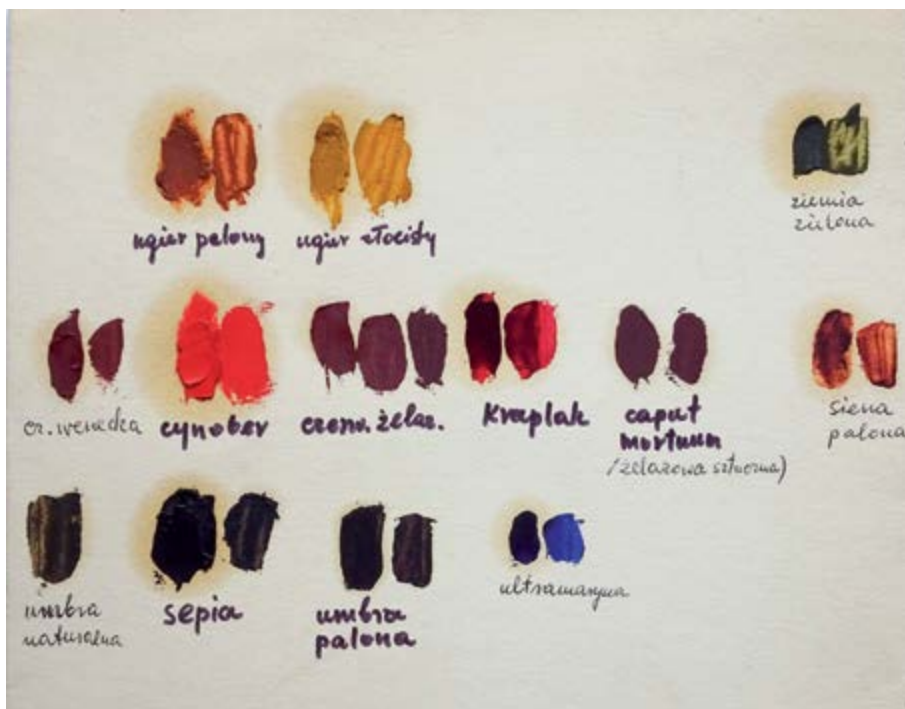 ugier palony
ugier złocisty
ziemia
zielona
cz. wenecka
cynober
czerw. żelaz.
Kraplak
caput
mortuum
/żelazowa sztuczna)
siena
palona
umbra
naturalna
sepia
umbra
palona
ultramaryna